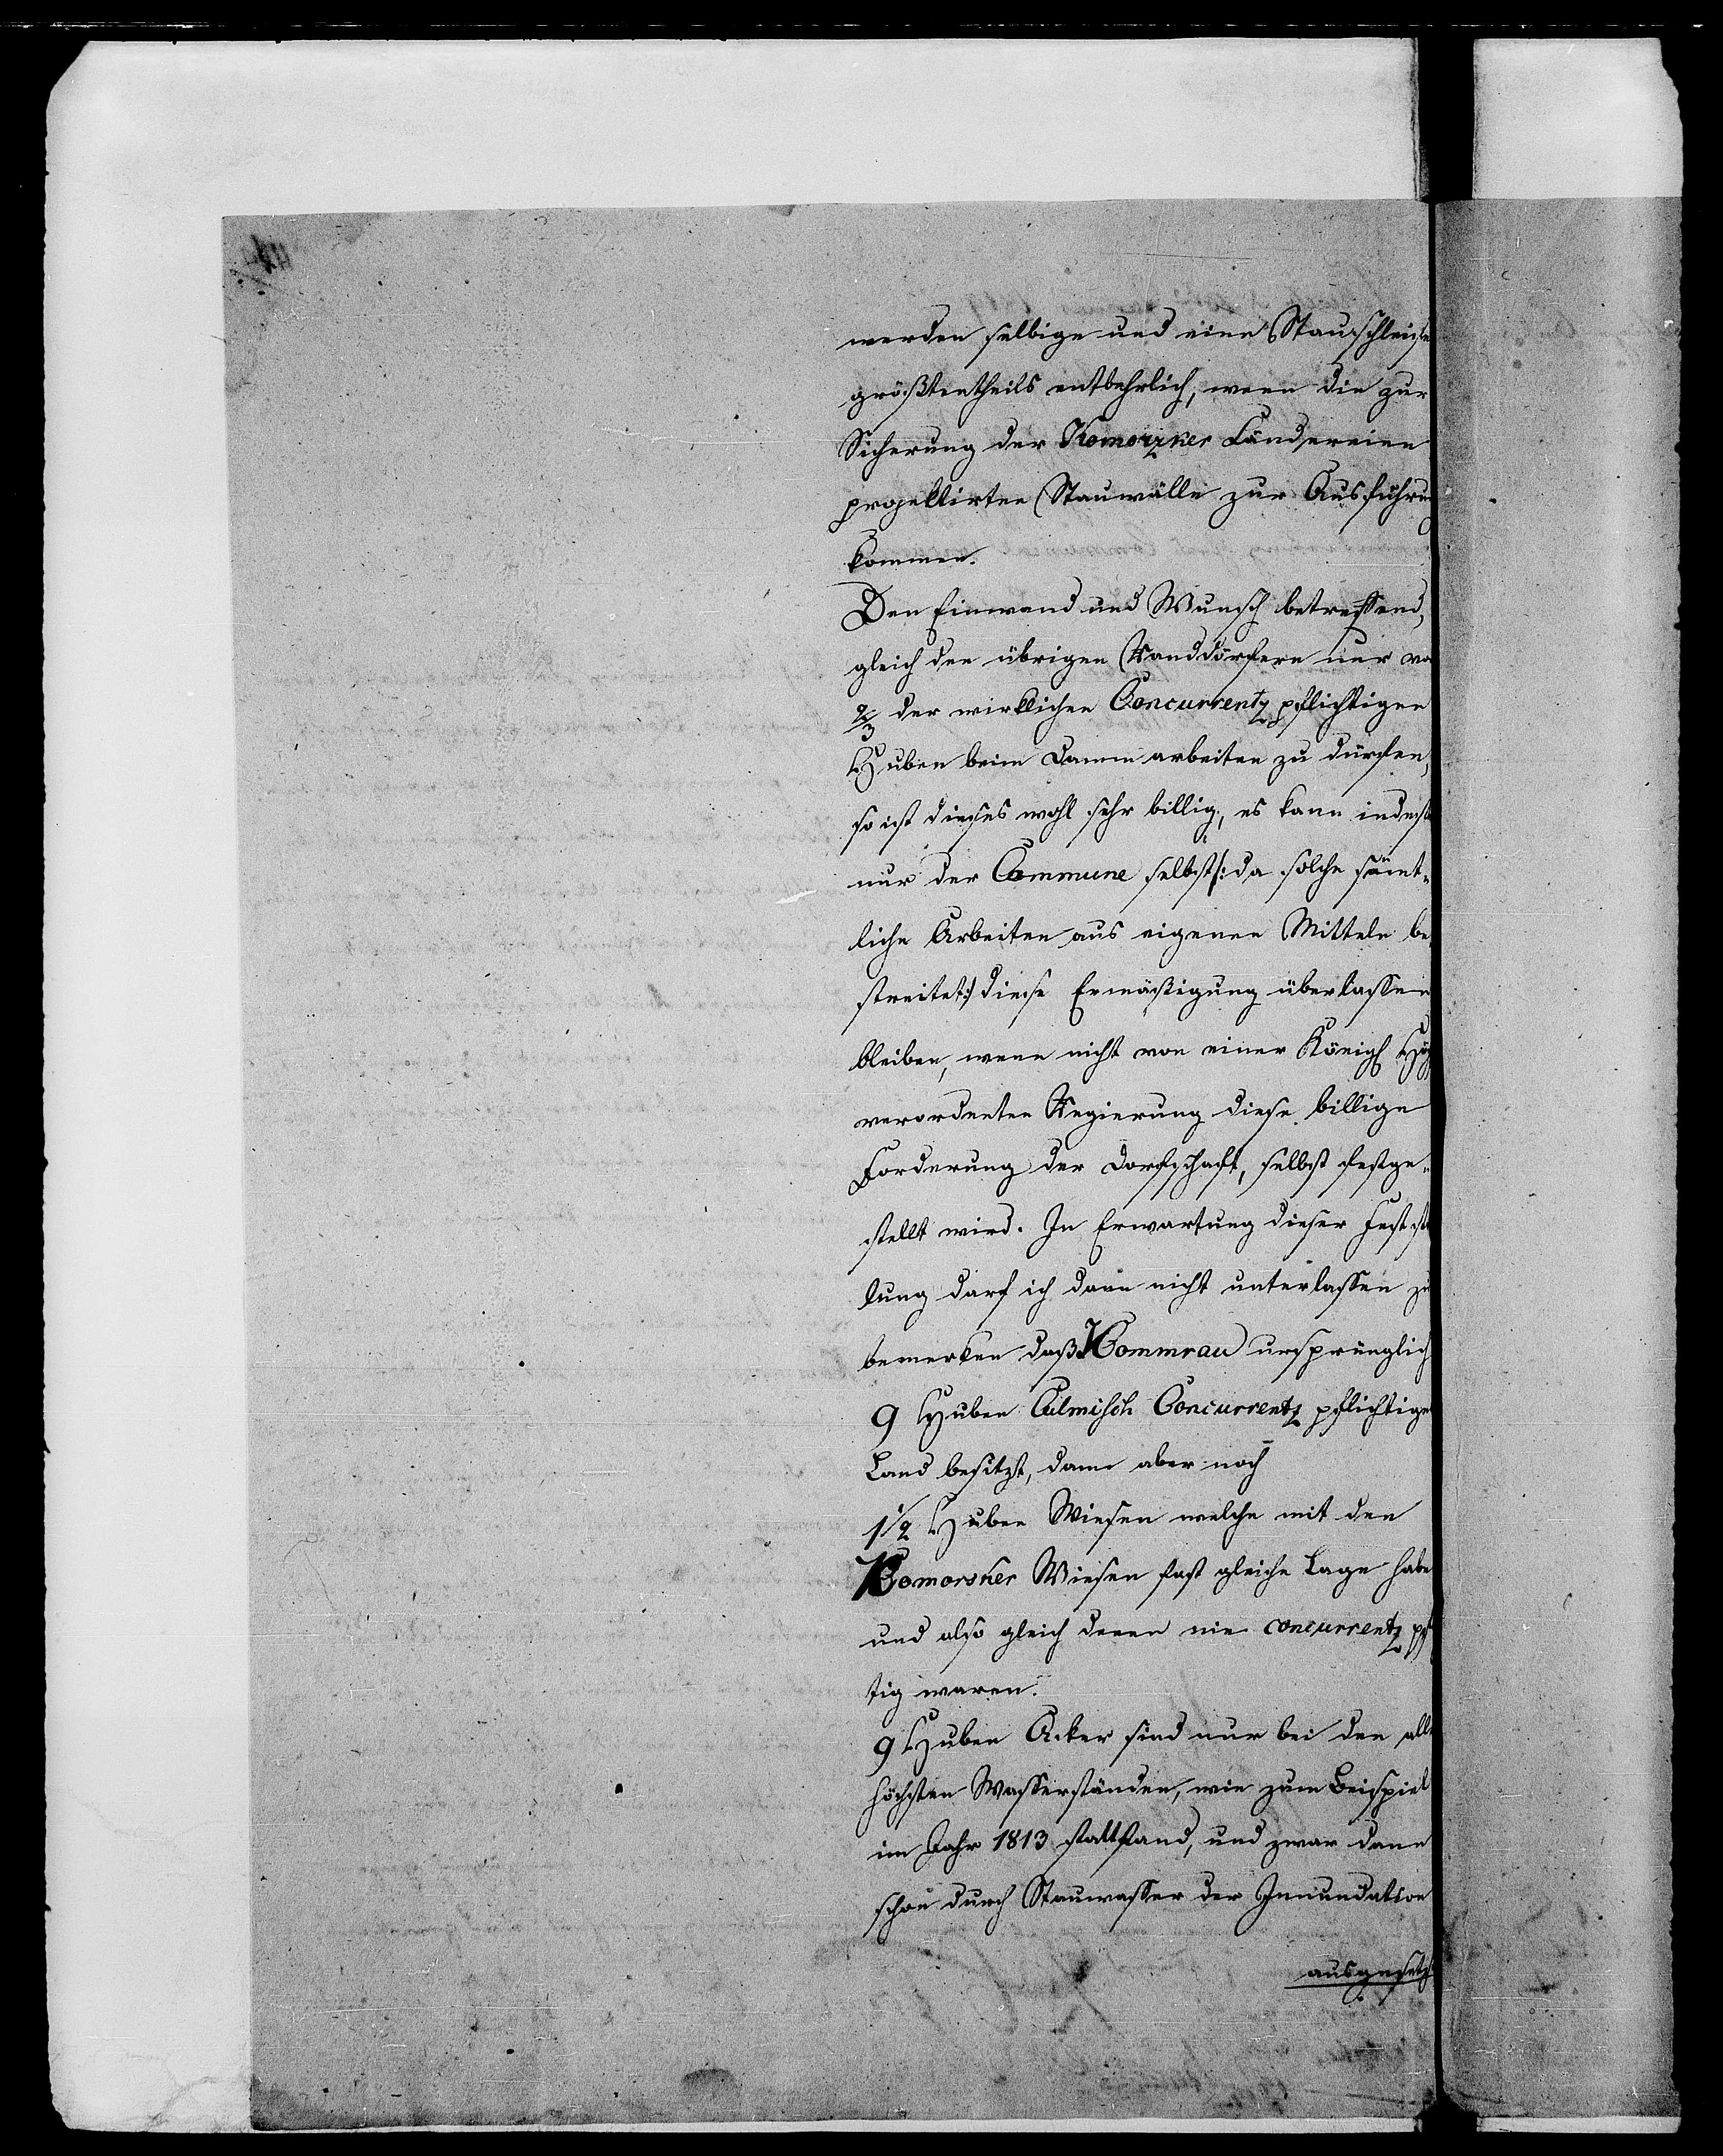 werden selbige und eine Stauschleuse
größtentheils entbehrlich, wenn die zur
Sicherung der Komorzker Ländereien
projektirten Stauwälle zur Ausführung
kommen.
Den Einwand und Wunsch betreffend,
gleich den übrigen Randdörfern nur von
2/3 der wirklichen Concurrentz pflichtigen
Huben beim Damm arbeiten zu dürfen,
so ist dieses wohl sehr billig, es kann indeß
nur der Commune selbst /: da solche sämt-
liche Arbeiten aus eigenen Mitteln be-
streitet :/ diese Ermäßigung überlassen
bleiben, wenn nicht von einer Königl
verordneten Regierung diese billige
Forderung der Dorfschaft, selbst festge-
stellt wird. In Erwartung dieser Festst
lung darf ich dann nicht unterlassen zu
bemerken daß Kommrau ursprünglich
9 Huben Culmisch Concurrentz pflichtige
Land besitzt, dann aber noch
1 1/2 Huben Wiesen welche mit den
Komorsker Wiesen fast gleiche Lage habe
und also gleich denen nie concurrentz pf
tig waren.
9 Huben Acker sind nur bei den all
höchsten Wasserständen, wie zum Beispiel
im Jahr 1813 stattfand, und zwar dann
schon durch Stauwasser der Innundation
ausgesetzt